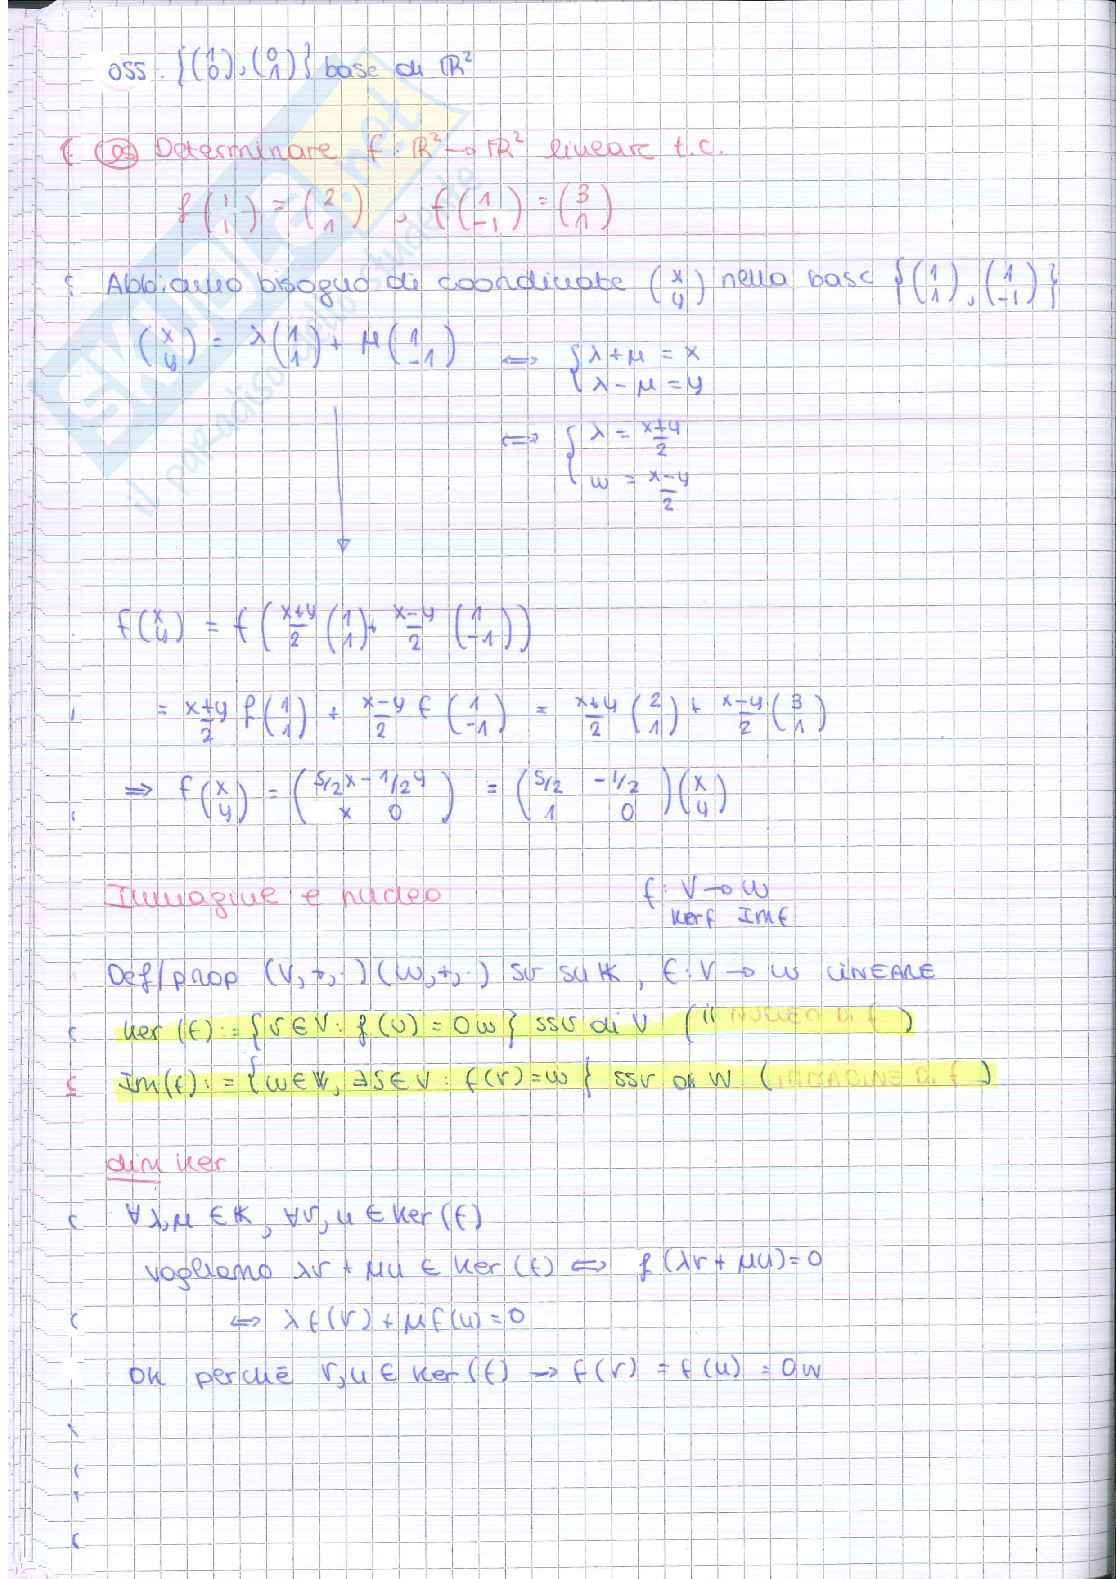 oss. {(1 0), (0 1)} base di ℝ²
es Determinare f: ℝ² → ℝ² lineare t.c.
f(1 1) = (2 1), f(1 -1) = (3 1)
Abbiamo bisogno di coordinate (x y) nella base {(1 1), (1 -1)}
(x y) = λ(1 1) + μ(1 -1) ⟺ {λ+μ = x
λ-μ = y
⟺ {λ = x+y/2
μ = x-y/2
f(x y) = f(x+y/2 (1 1) + x-y/2 (1 -1))
= x+y/2 f(1 1) + x-y/2 f(1 -1) = x+y/2 (2 1) + x-y/2 (3 1)
⇒ f(x y) = (5/2x - 1/2y
x 0) = (5/2 -1/2
1 0)(x y)
Immagine e nucleo f: V → W
Kerf Imf
Def/prop (V,+,·) (W,+,·) sv su K, f: V → W LINEARE
Ker(f) := {v∈V : f(v) = 0w} ssv di V (il NUCLEO DI f)
Im(f) := {w∈W, ∃v∈V : f(v)=w} ssv di W (IMMAGINE DI f)
dim Ker
∀λ,μ ∈ K, ∀v,u ∈ Ker(f)
vogliamo λv + μu ∈ Ker(f) ⟺ f(λv + μu) = 0
⟺ λf(v) + μf(u) = 0
OK perchē v,u ∈ Ker(f) → f(v) = f(u) = 0w
SKUOLA.net
il paradiso dello studente